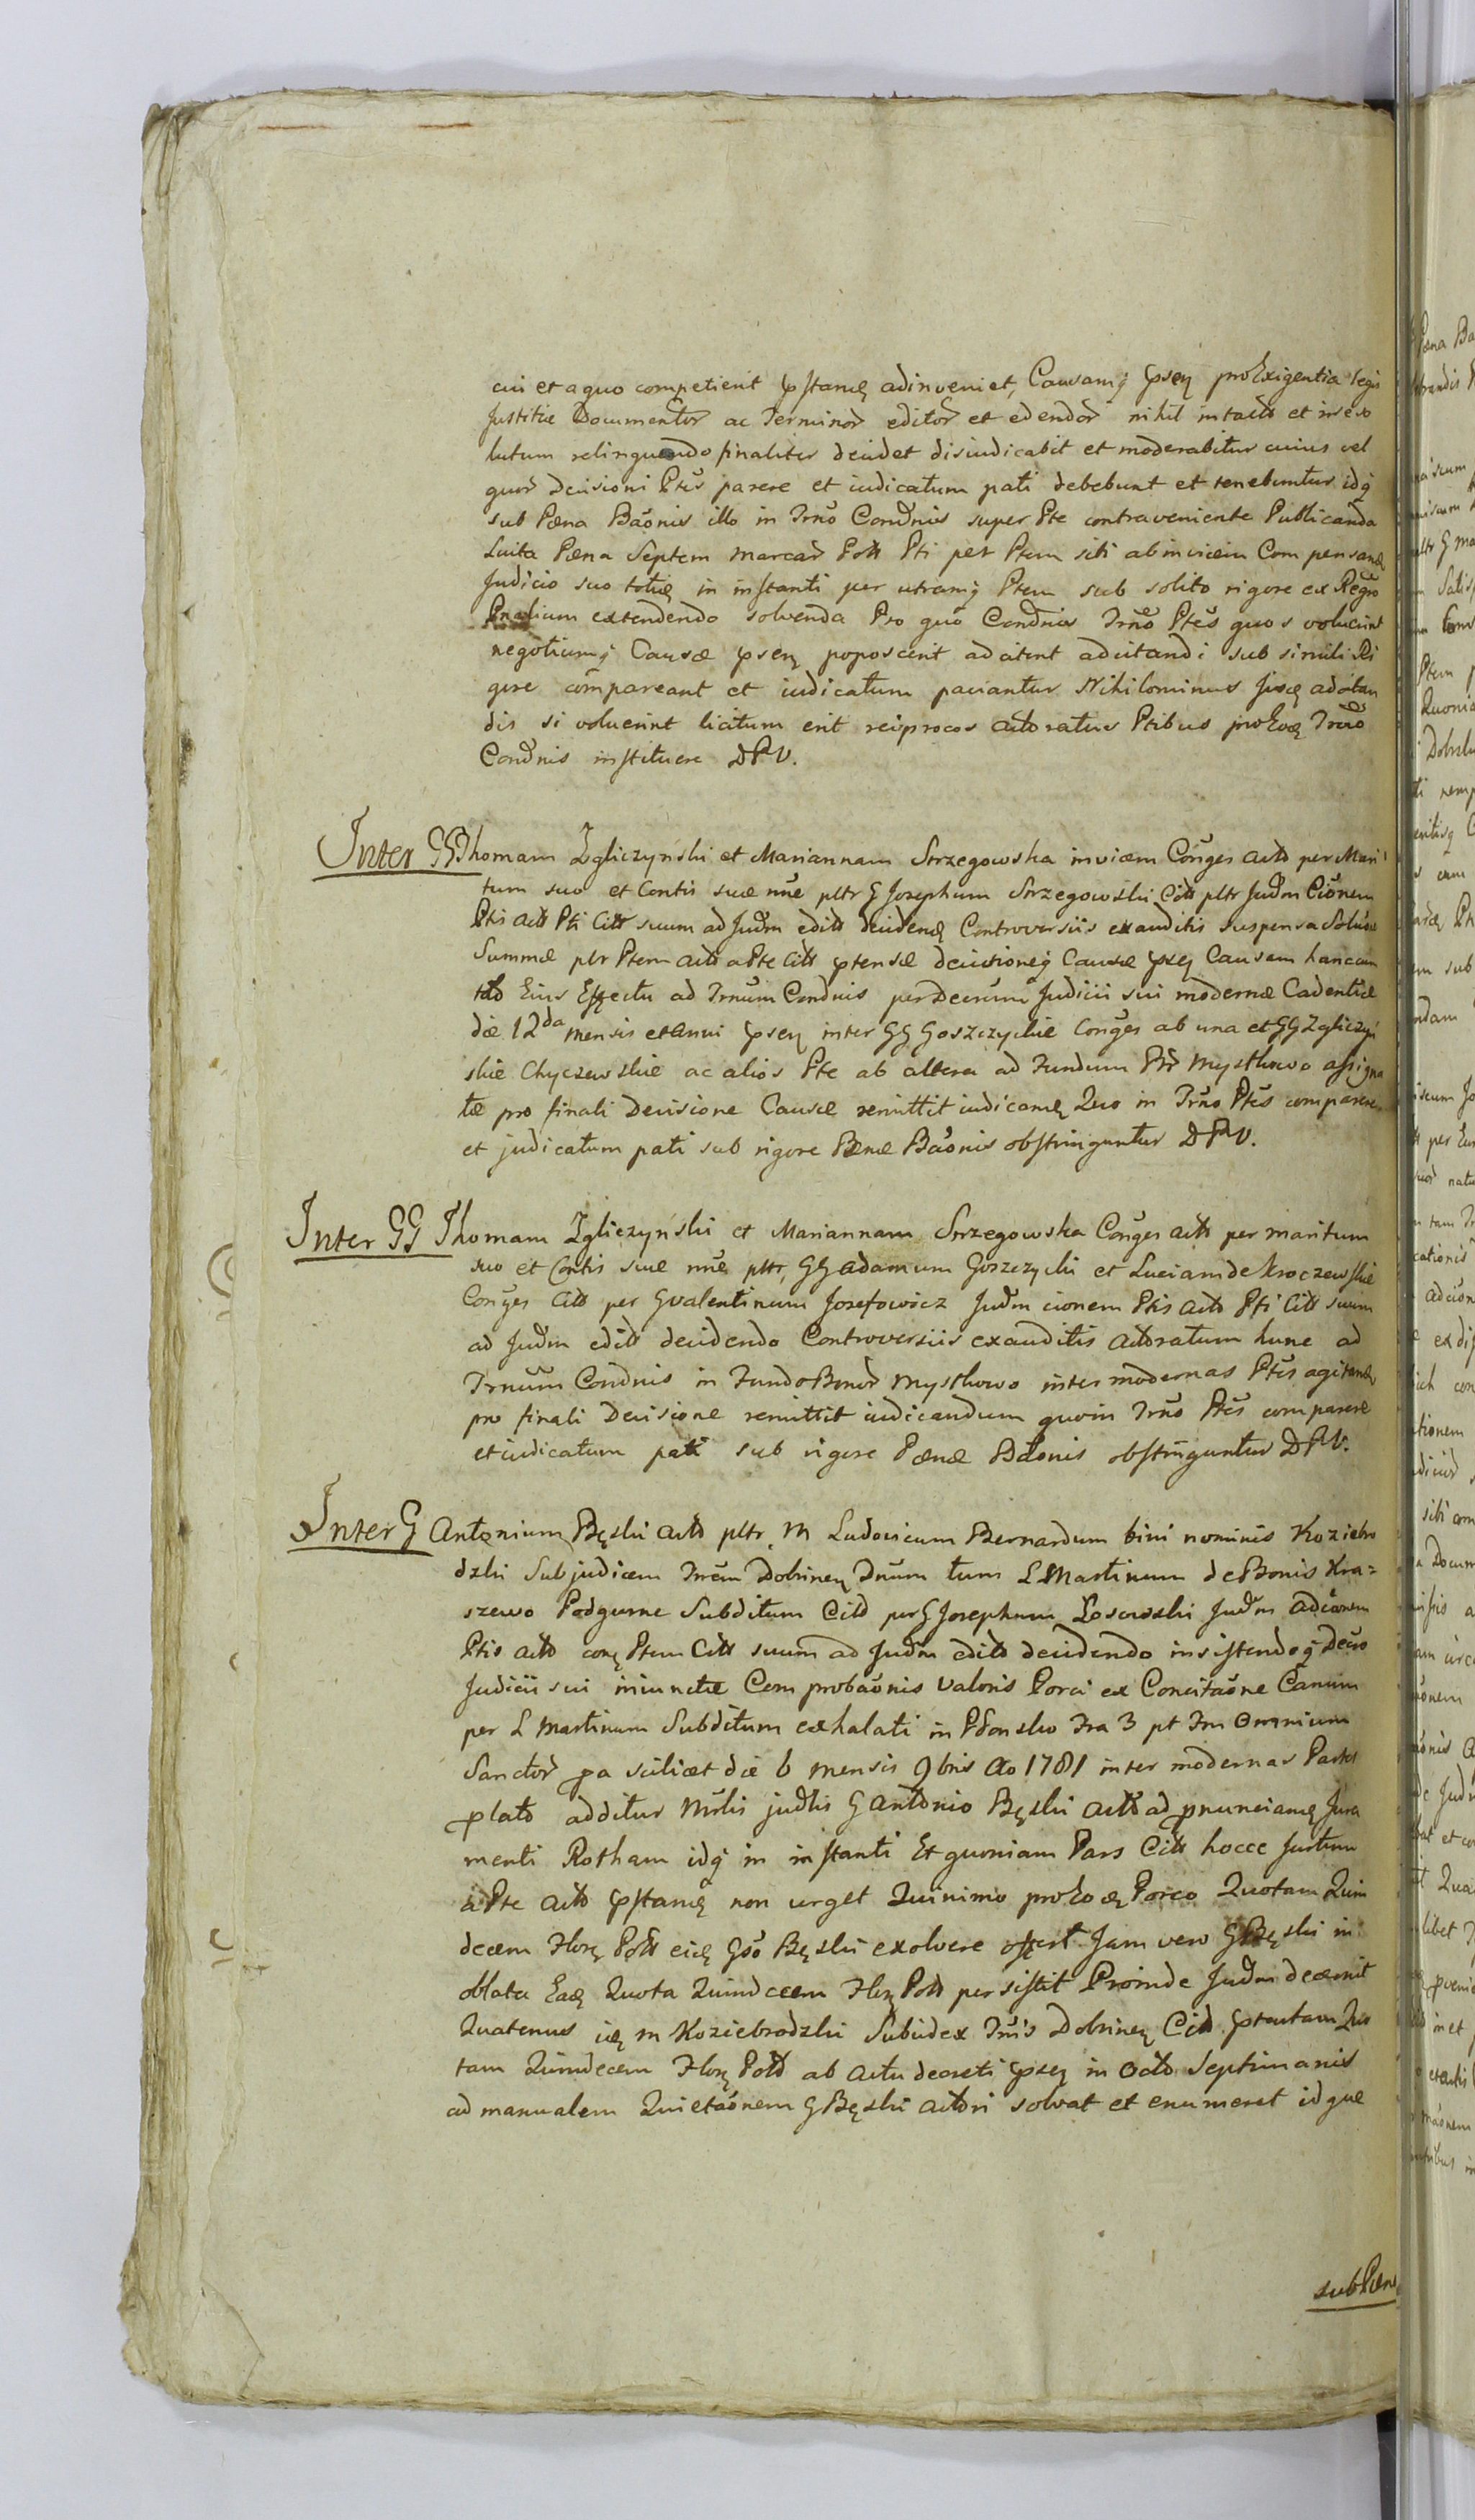 cui et a quo competierit pstandę adinveniet, Causamq psen pro Exigentia legis
Justitiæ Documentor ac Terminor editor et edendor nihil intactt et irreso
lutum relinquendo finaliter decidet disiudicabit et moderabitur cuius vel
quor Decisioni Ptes parere et iudicatum pati debebunt et tenebuntur idq
sub Pæna Baonis illo in Trno Condnis super Pte contraveniente Publicanda
Luita Pæna Septem marcar Poll Pti per Ptem sibi abinvicem Compensandę
Judicio suo totiię in instanti per utramq Ptem sub solito rigore ex Regro
Pænalium extendendo solvenda Pro quo Condnis Trno Ptes quos voluerint
negotiumq Causæ psen poposcerit adcitent adcitandi sub simili Ri
gore compareant et iudicatum paciantur Nihilominus hisce adcitan
dis si voluerint licitum erit reciprocos actoratus Ptibus pro Eoę Trno
Condnis instituere DPV.
Inter GG Thomam Zgliczyński et Mariannam Strzegowska invicem Conges actt per Mari
tum suo et Contis suæ nne pltr G Josephum Strzegowski Citt pltr Judm Cionem
Ptis actt Pti Citt suum ad Judm editt decidendę Controversiis exauditis suspensa Solutione
Summæ per Ptem actt a Pte Citt ptensæ decisioneq Causæ psen Causam hancce in
toto Eius Effectu ad Trnum Condnis per Decretum Judicii sui modernæ Cadentiæ
die 12da mensis et anni psen inter GG Goszczyckie Conges ab una et GG Zgliczyń
skie Chyczewskie ac alios Pte ab altera ad Fundum Br Mysthowo assigna
tæ pro finali Decisione Causæ remittit iudicandę Quo in Trno Ptes comparere
et judicatum pati sub rigore Pænæ Baonis obstringuntur DPV.
Inter GG Thomam Zgliczyński et Mariannam Strzegowska Conges actt per maritum
suo et Contis suæ nne pltr, GG Adamum Goszczycki et Luciam de Kroczewskie
Conges Citt per G Valentinum Josefowicz Judm cionem Ptis actt Pti Citt suum
ad Judm editt decidendo Controversiis exauditis actoratum hunc ad
Trnum Condnis in Fundo Bonor Mysthowo inter modernas Ptes agitandę
pro finali Decisione remittit iudicandum quo in Trno Ptes comparere
et iudicatum pati sub rigore Pænæ Bationis obstringuntur DPV.
Inter G Antonium Bęski actt pltr M Ludovicum Bernardum bini nominis Koziebro
dzki Subjudicem Trrem Dobrinen Dnum tum L Martinum de Bonis Kra=
szewo Podgurne Subditum Citt per G Josephum Losowski Judm adcionem
Ptis actt conę Ptem Citt suum ad Judm editt decidendo insistendoq Decto
Judicii sui iniunctæ Comprobaonis Valoris Porci ex Concitaone Canum
per L Martinum Subditum exhalati in Płonsko Fra 3 pt Fm Omnium
Sanctor pa scilicet die 6 mensis 9bris Ao 1781 inter modernas Partes
plato additur Mrlis judlis G Antonio Bęski actt ad pnunciandę Jura
menti Rotham idq in instanti Et quoniam Pars Citt hocce Jurtum
a Pte actt pstandę non urget Quinimo pro Eoę Porco Quotam Quin
decem Flor Poll eidę Gso Bęski exolvere offert Jam vero G Bęski in
oblata Eadę Quota Quindecem Flor Poll persistit Proinde Judm decernit
Quatenus idę M Koziebrodzki Subiudex Tris Dobrinen Citt ptactam Quo
tam Quindecem Flor Poll ab actu decreti psen in Octo Septimanis
ad manualem Quietaonem G Bęski actori solvat et enumeret idque
sub Pæna